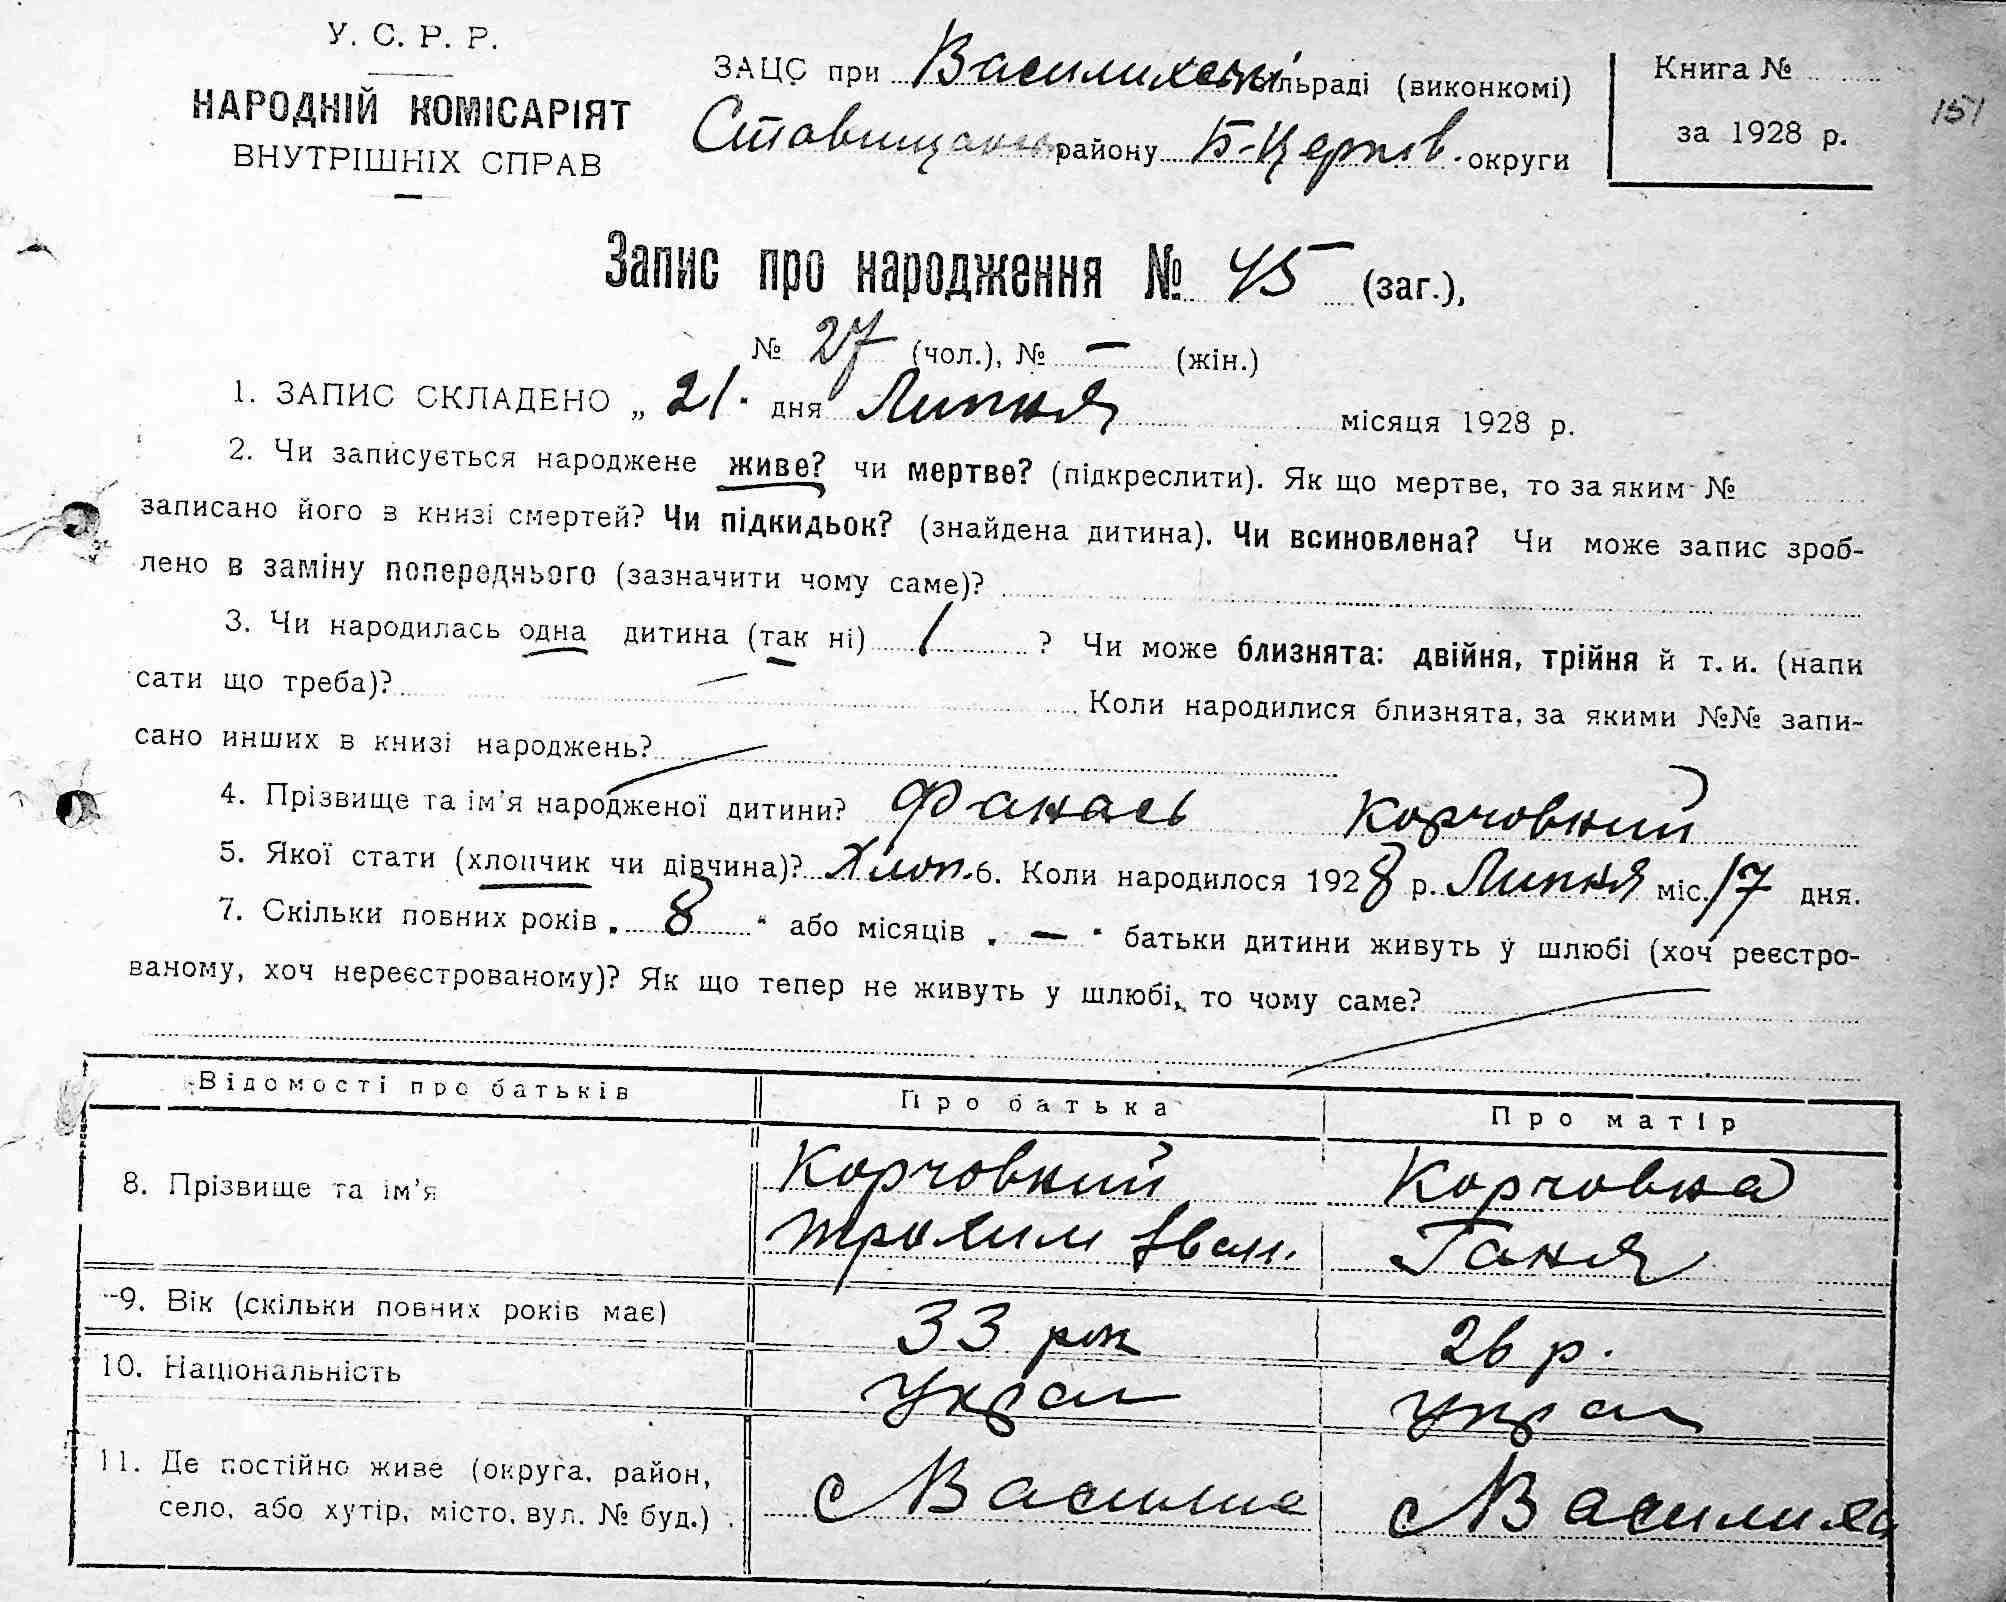 У. С. Р. Р.
НАРОДНІЙ КОМІСАРІЯТ
ВНУТРІШНІХ СПРАВ
ЗАЦС при Василихські сільраді (виконкомі)
Ставищансь району Б-Церків. округи
Книга №
за 1928 р.
151
Запис про народження № 45 (заг.),
№ 27 (чол.), № — (жін.)
1. ЗАПИС СКЛАДЕНО „ 21 " дня Липня місяця 1928 р.
2. Чи записується народжене живе? чи мертве? (підкреслити). Як що мертве, то за яким №
записано його в книзі смертей? Чи підкидьок? (знайдена дитина). Чи всиновлена? Чи може запис зроб-
лено в заміну попереднього (зазначити чому саме)?
3. Чи народилась одна дитина (так ні) 1 ? Чи може близнята: двійня, трійня й т. и. (напи
сати що треба)? — Коли народилися близнята, за якими №№ запи-
сано инших в книзі народжень?
4. Прізвище та ім'я народженої дитини? Фанась Корчовний
5. Якої стати (хлопчик чи дівчина)? Хлоп. 6. Коли народилося 1928 р. Липня міс. 17 дня.
7. Скільки повних років „ 8 " або місяців „ — " батьки дитини живуть у шлюбі (хоч реєстро-
ваному, хоч нереєстрованому)? Як що тепер не живуть у шлюбі, то чому саме?
Відомості про батьків Про батька Про матір
8. Прізвище та ім'я Корчовний Корчовна
Трохим Іван. Ганя
9. Вік (скільки повних років має) 33 рок 26 р.
10. Національність Украл Украл
11. Де постійно живе (округа, район, с Василиха с Василиха
село, або хутір, місто, вул. № буд.)